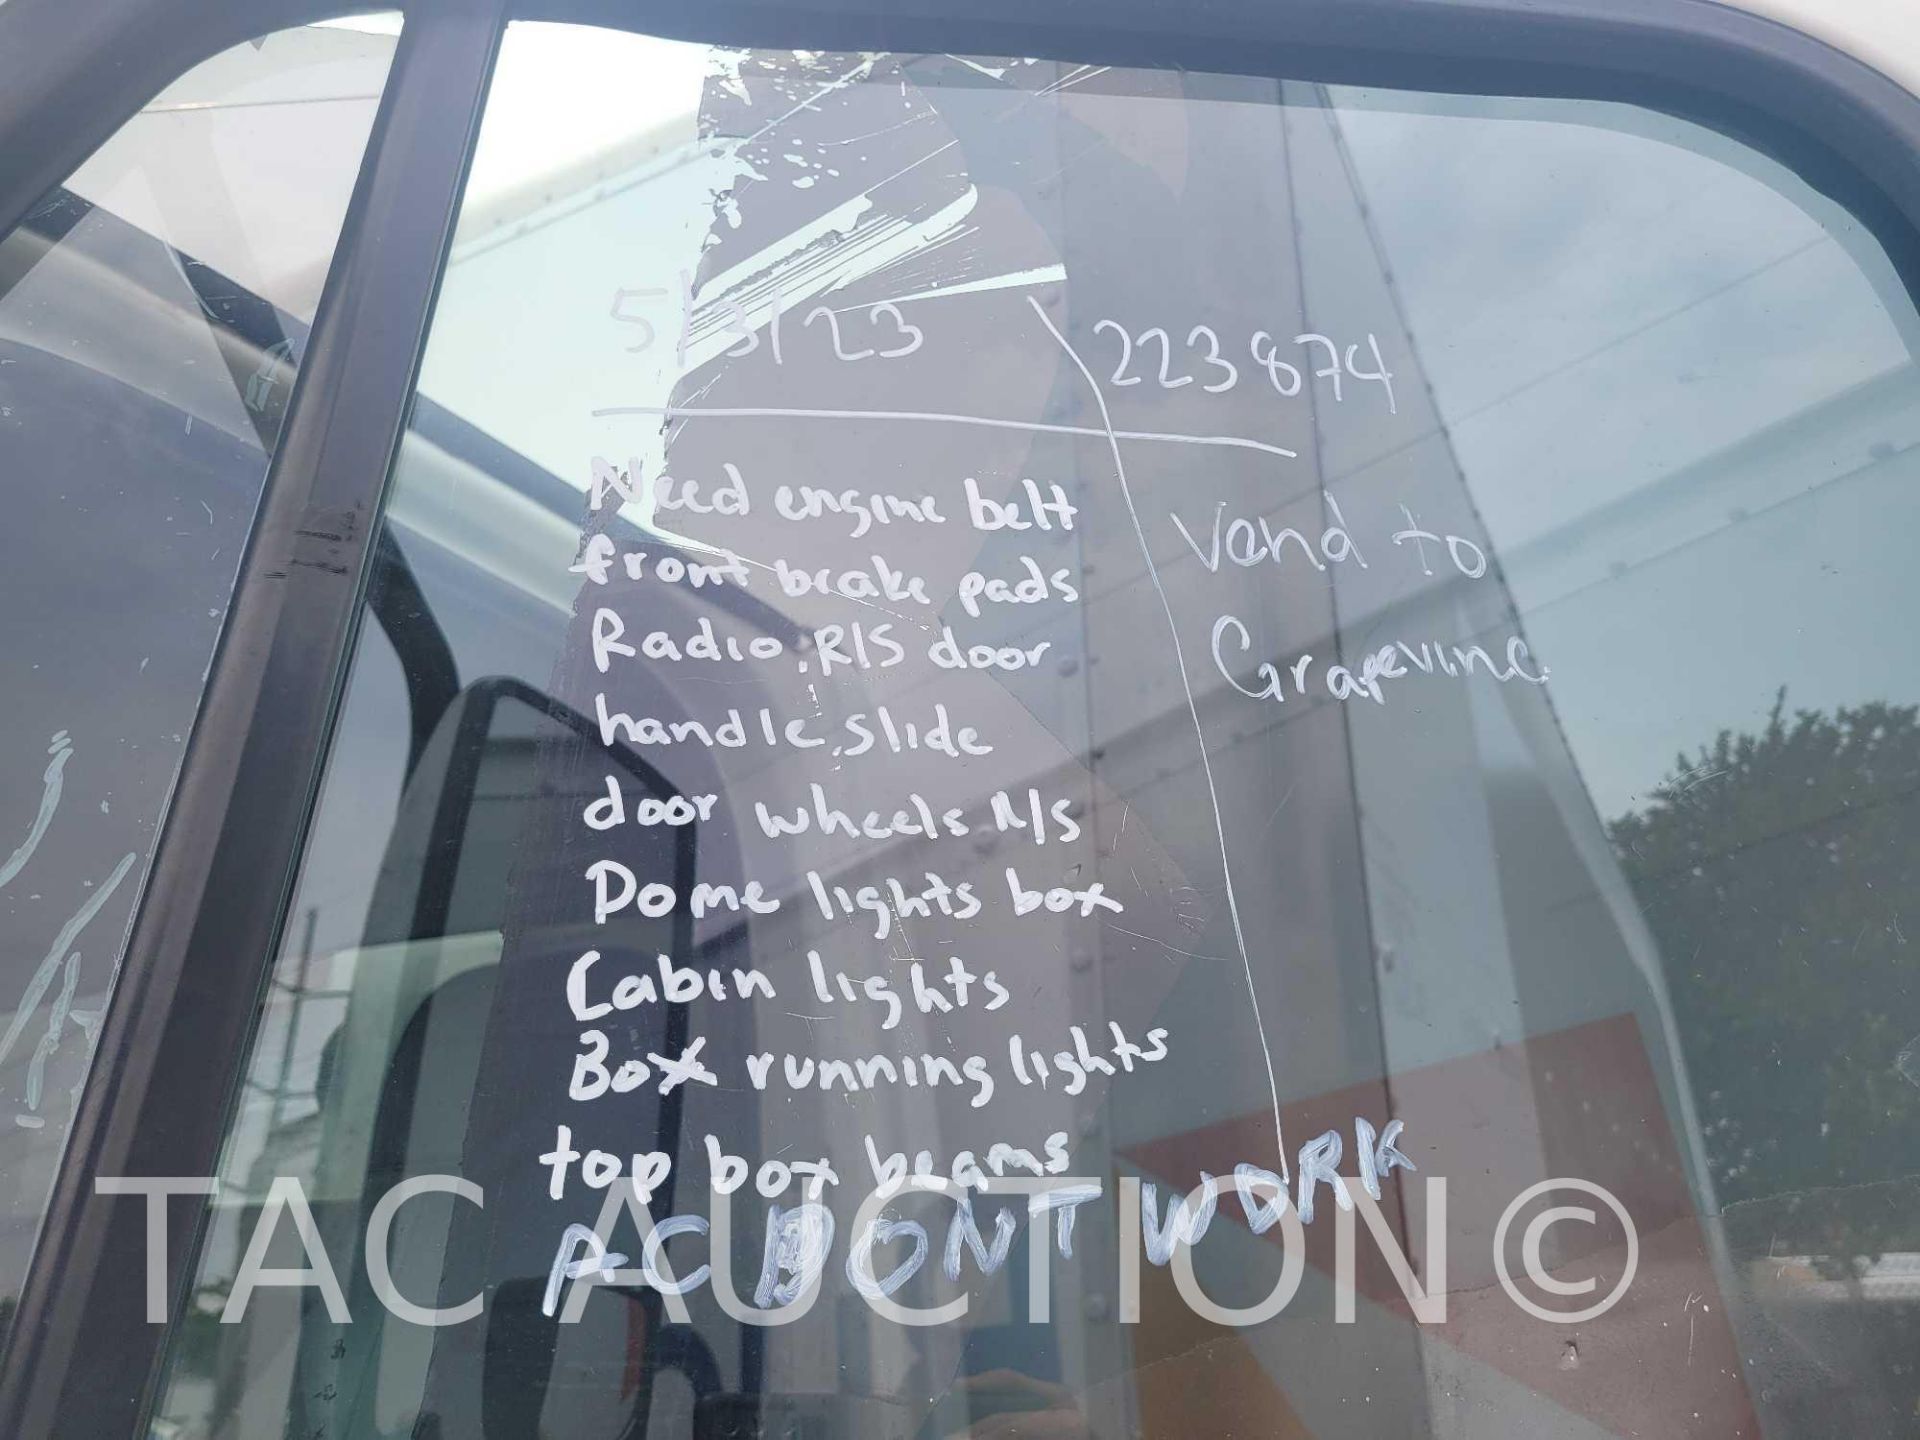 5/3/23
223874
Need engine belt
front brake pads
Radio, R/S door
handle, slide
door wheels R/S
Dome lights box
Cabin lights
Box running lights
top box beams
AC DONT WORK
Vend to
Grapevine
TAC AUCTION ©